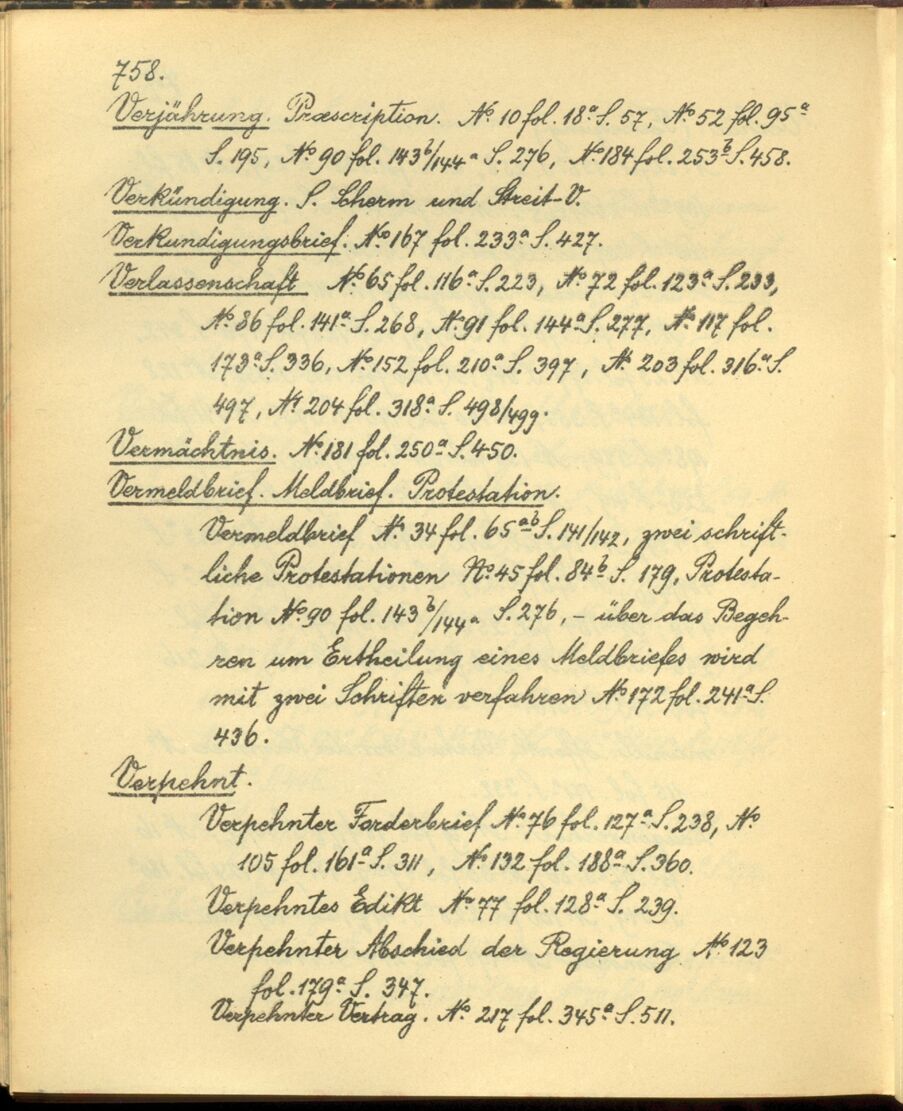 758.
Verjährung. Præscription. No 10 fol. 18a S. 57, No 52 fol. 95a
S. 195, No 90 fol. 143b/144a S. 276, No 184 fol. 253b S. 458.
Verkündigung. S. Lherm und Streit-V.
Verkundigungsbrief. No 167 fol. 233a S. 427.
Verlassenschaft No 65 fol. 116a S. 223, No 72 fol. 123a S. 233,
No 86 fol. 141a S. 268, No 91 fol. 144a S. 277, No 117 fol.
173a S. 336, No 152 fol. 210a S. 397, No 203 fol. 316a S.
497, No 204 fol. 318a S. 498/499.
Vermächtnis. No 181 fol. 250a S. 450.
Vermeldbrief. Meldbrief. Protestation.
Vermeldbrief No 34 fol. 65ab S. 141/142, zwei schrift-
liche Protestationen No 45 fol. 84b S. 179, Protesta-
tion No 90 fol. 143b/144a S. 276, – über das Begeh-
ren um Ertheilung eines Meldbriefes wird
mit zwei Schriften verfahren No 172 fol. 241a S.
436.
Verpehnt.
Verpehnter Forderbrief No 76 fol. 127a S. 238, No
105 fol. 161a S. 311, No 132 fol. 188a S. 360.
Verpehntes Edikt No 77 fol. 128a S. 239.
Verpehnter Abschied der Regierung No 123
fol. 179a S. 347.
Verpehnter Vertrag. No 217 fol. 345a S. 511.